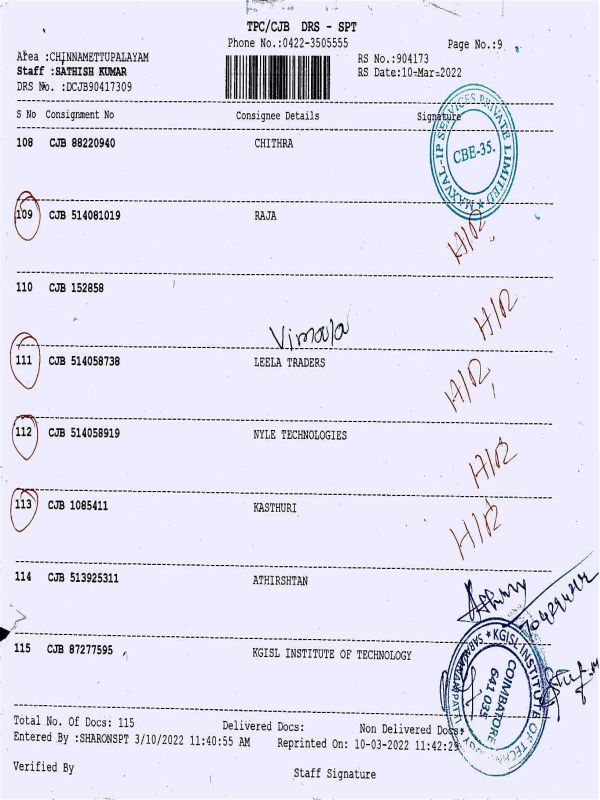 TPC/CJB DRS - SPT
Phone No.:0422-3505555 Page No.:9
Area :CHINNAMETTUPALAYAM RS No.:904173
Staff :SATHISH KUMAR RS Date:10-Mar-2022
DRS No. :DCJB90417309
S No Consignment No Consignee Details Signature
108 CJB 88220940 CHITHRA
MAXNAL-IP SERVICES PRIVATE LIMITED
CBE-35.
109 CJB 514081019 RAJA
H/R
110 CJB 152858
H/R
Vimala
111 CJB 514058738 LEELA TRADERS
H/R
112 CJB 514058919 NYLE TECHNOLOGIES
H/R
113 CJB 1085411 KASTHURI
H/R
114 CJB 513925311 ATHIRSHTAN
115 CJB 87277595 KGISL INSTITUTE OF TECHNOLOGY
KGISL INSTITUTE OF TECHNOLOGY
COIMBATORE
641 035
Total No. Of Docs: 115 Delivered Docs: Non Delivered Docs:
Entered By :SHARONSPT 3/10/2022 11:40:55 AM Reprinted On: 10-03-2022 11:42:29
Verified By Staff Signature